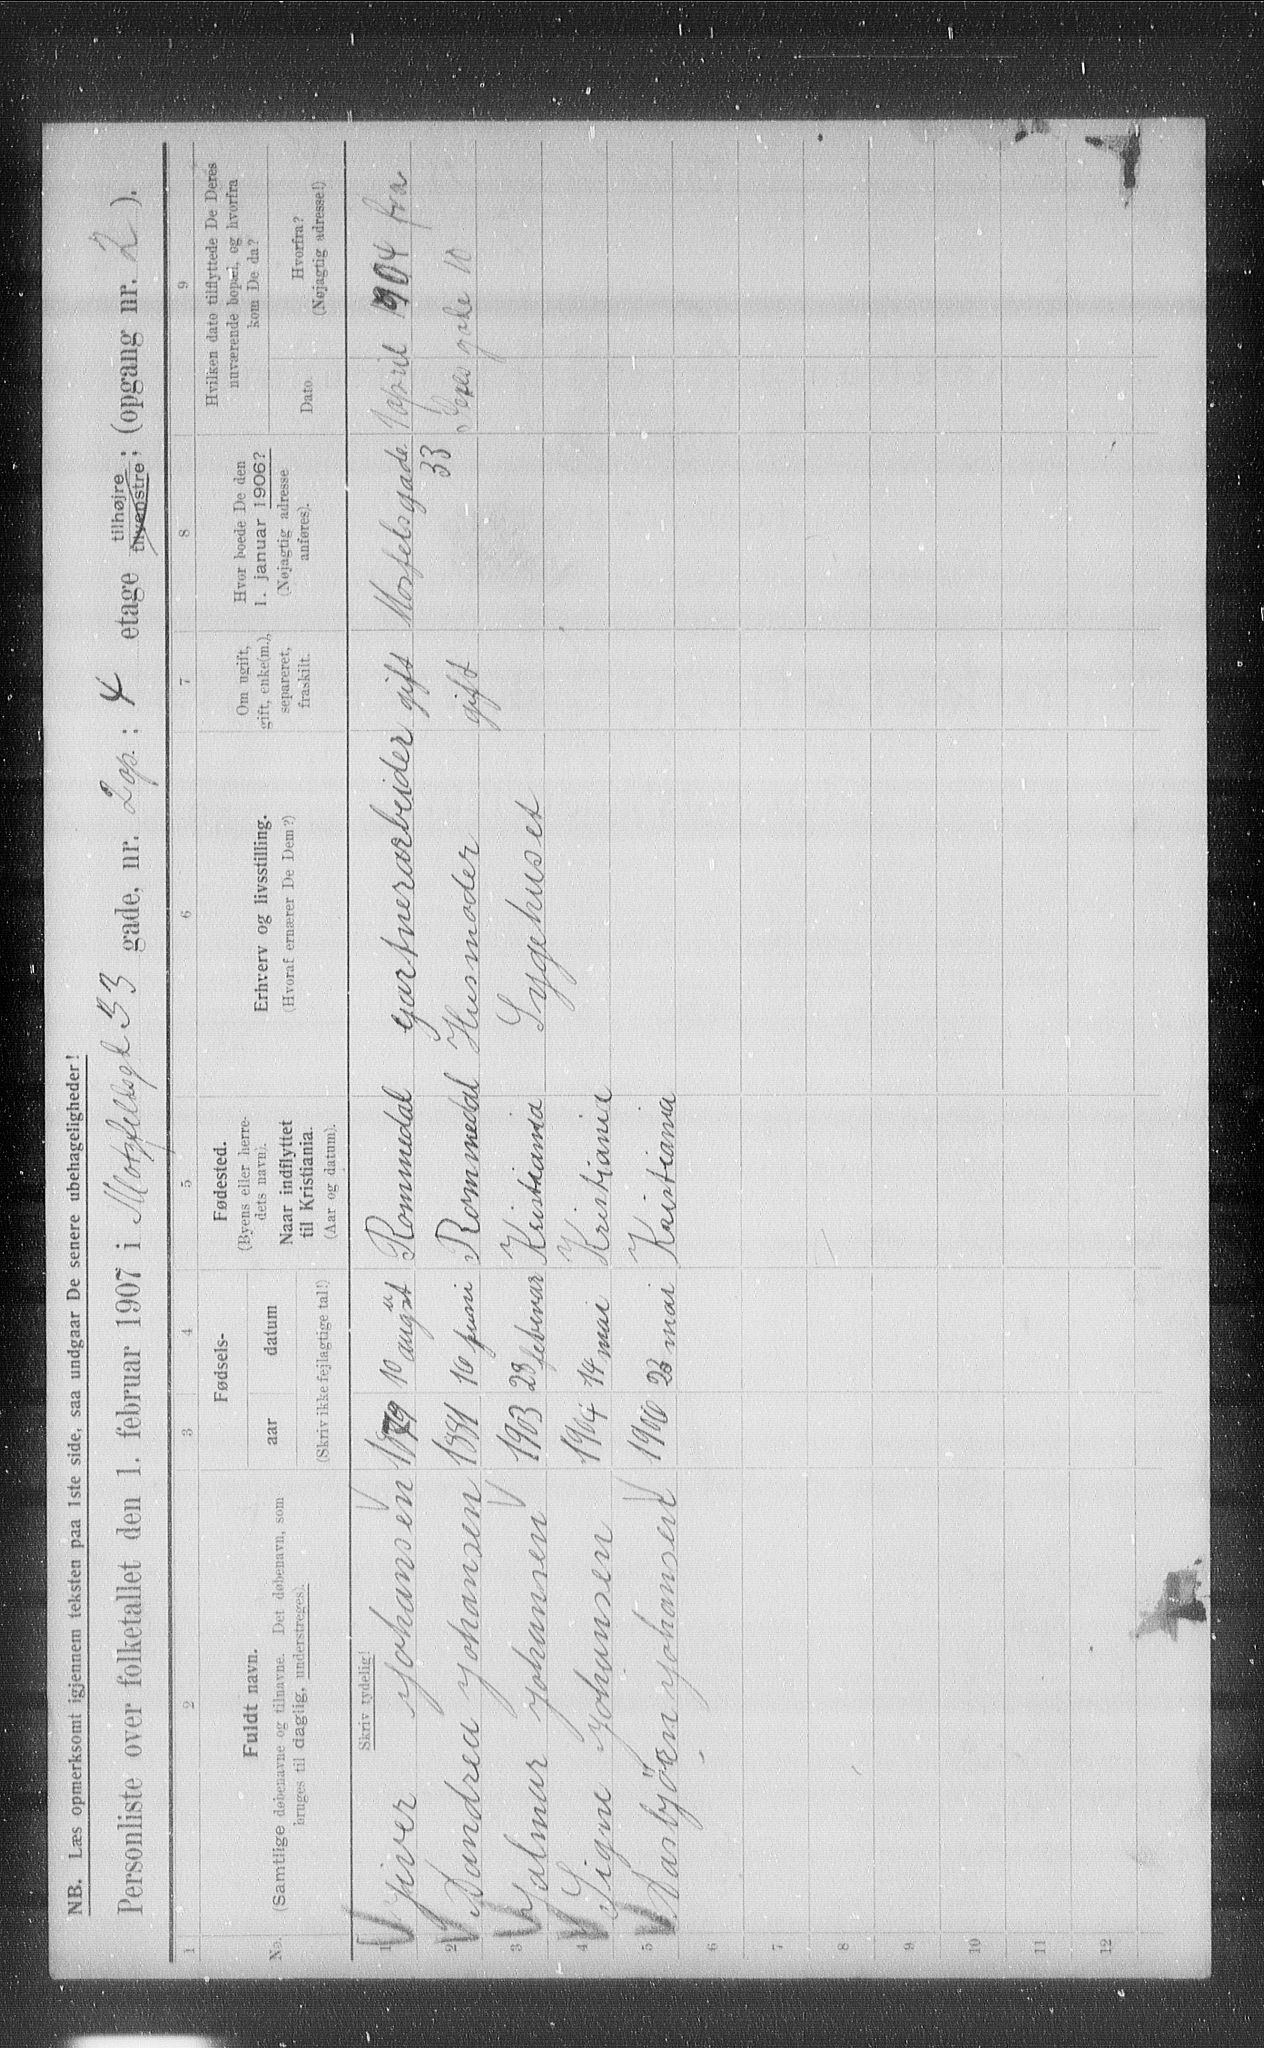 NB. Læs opmerksomt igjennem teksten paa 1ste side, saa undgaar De senere ubehageligheder!
Personliste over folketallet den 1. februar 1907 i Motzfeldtsgt 33 gade, nr. 2 op. : 4 etage tilhøjre ; tilvenstre ; (opgang nr. 2 ).
1 2 3 4 5 6 7 8 9
No.
Fuldt navn.
(Samtlige døbenavne og tilnavne. Det døbenavn, som
bruges til daglig, understreges).
Fødsels-
aar datum
(Skriv ikke fejlagtige tal!)
Fødested.
(Byens eller herre-
dets navn).
Naar indflyttet
til Kristiania.
(Aar og datum).
Erhverv og livsstilling.
(Hvoraf ernærer De Dem?)
Om ugift,
gift, enke(m.),
separeret,
fraskilt.
Hvor boede De den
1. januar 1906?
(Nøjagtig adresse
anføres).
Hvilken dato tilflyttede De Deres
nuværende bopæl, og hvorfra
kom De da?
Dato.
Hvorfra?
(Nøjagtig adresse!)
Skriv tydelig!
1 Iver Johansen 1879 10 august Rommedal gartnerarbeider gift Mosfelsgade 33 1 april 1904 fra
2 Andrea Johansen 1881 16 juni Rommedal Husmoder gift gade 10
3 Hjalmar Johansen 1903 28 februar Kristiania Sygehuset
4 Signe Johansen 1904 14 mai Kristiania
5 Aasbjörn Johansen 1906 23 mai Kristiania
6
7
8
9
10
11
12